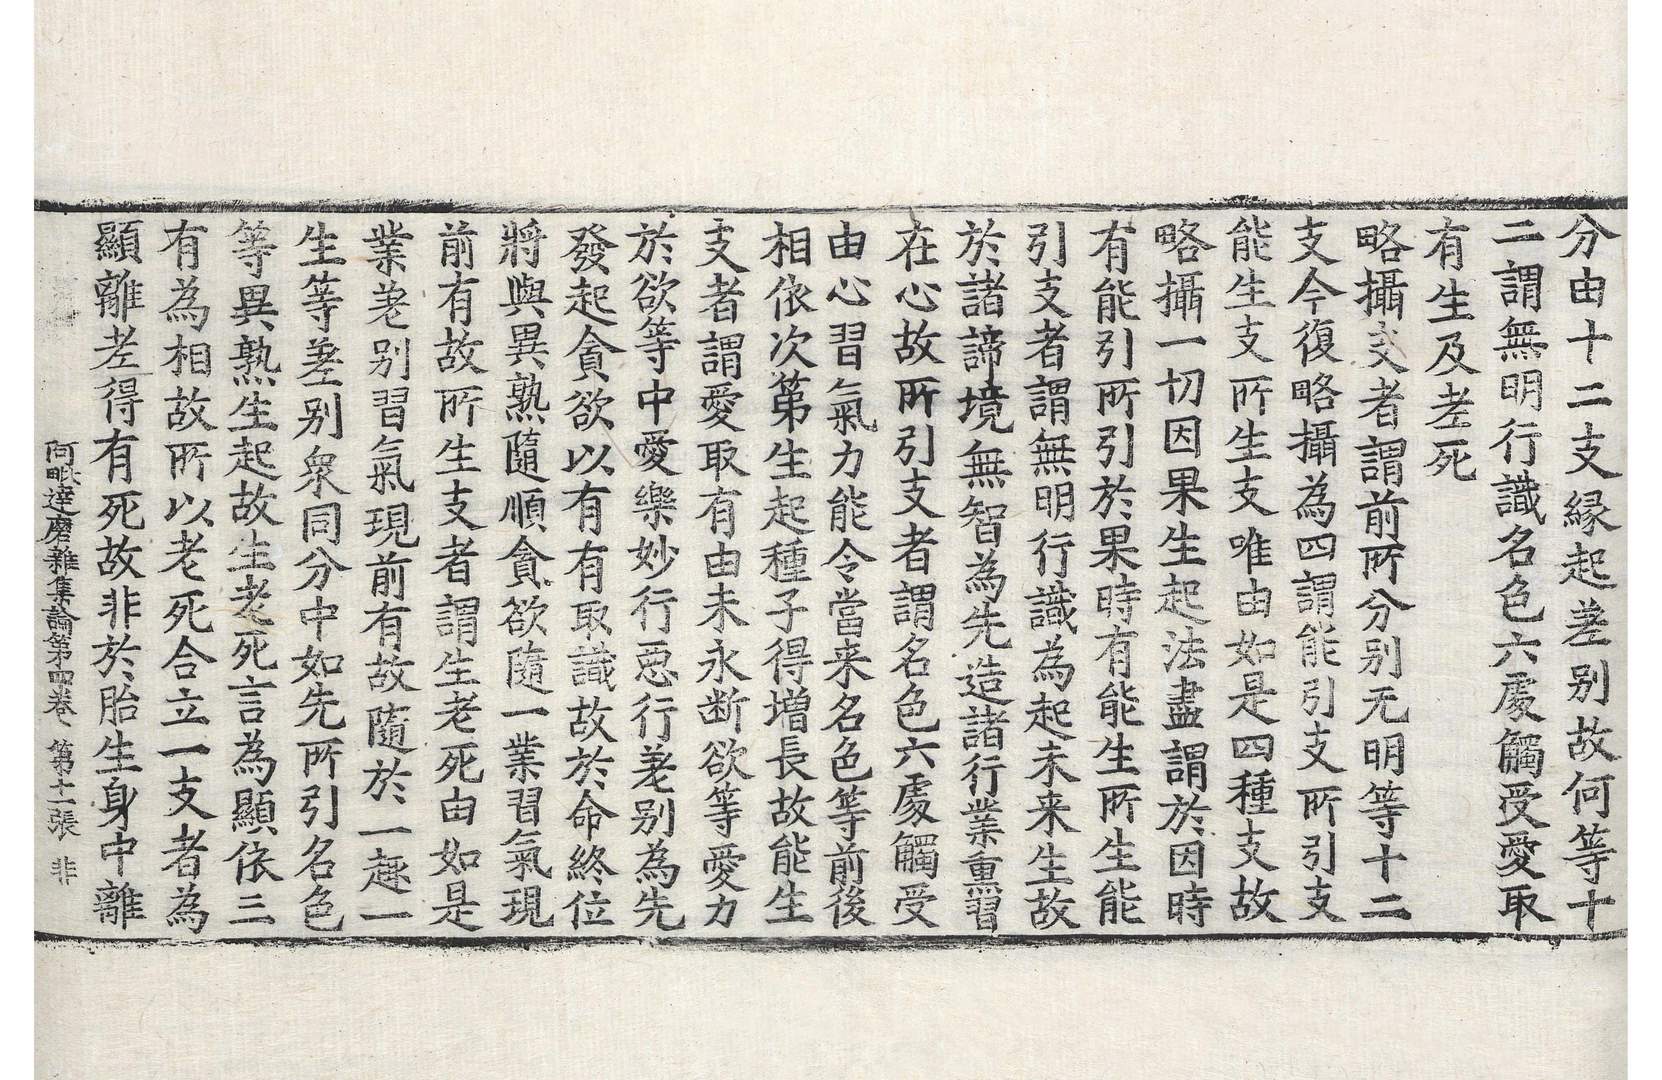 分由十二支縁起差别故何等十
二謂無明行識名色六處觸受愛取
有生及老死
略攝支者謂前所分别无明等十二
支今復略攝為四謂能引支所引支
能生支所生支唯由如是四種支故
略攝一切因果生起法盡謂於因時
有能引所引於果時有能生所生能
引支者謂無明行識為起未来生故
於諸諦境無智為先造諸行業熏習
在心故所引支者謂名色六處觸受
由心習氣力能令當来名色等前後
相依次第生起種子得增長故能生
支者謂愛取有由未永断欲等愛力
於欲等中愛樂妙行惡行差别為先
發起貪欲以有有取識故於命終位
將與異熟隨順貪欲隨一業習氣現
前有故所生支者謂生老死由如是
業差别習氣現前有故隨於一趣一
生等差别衆同分中如先所引名色
等異熟生起故生老死言為顯依三
有為相故所以老死合立一支者為
顯離老得有死故非於胎生身中離
阿毗達磨雜集論第四卷 第十一張 非